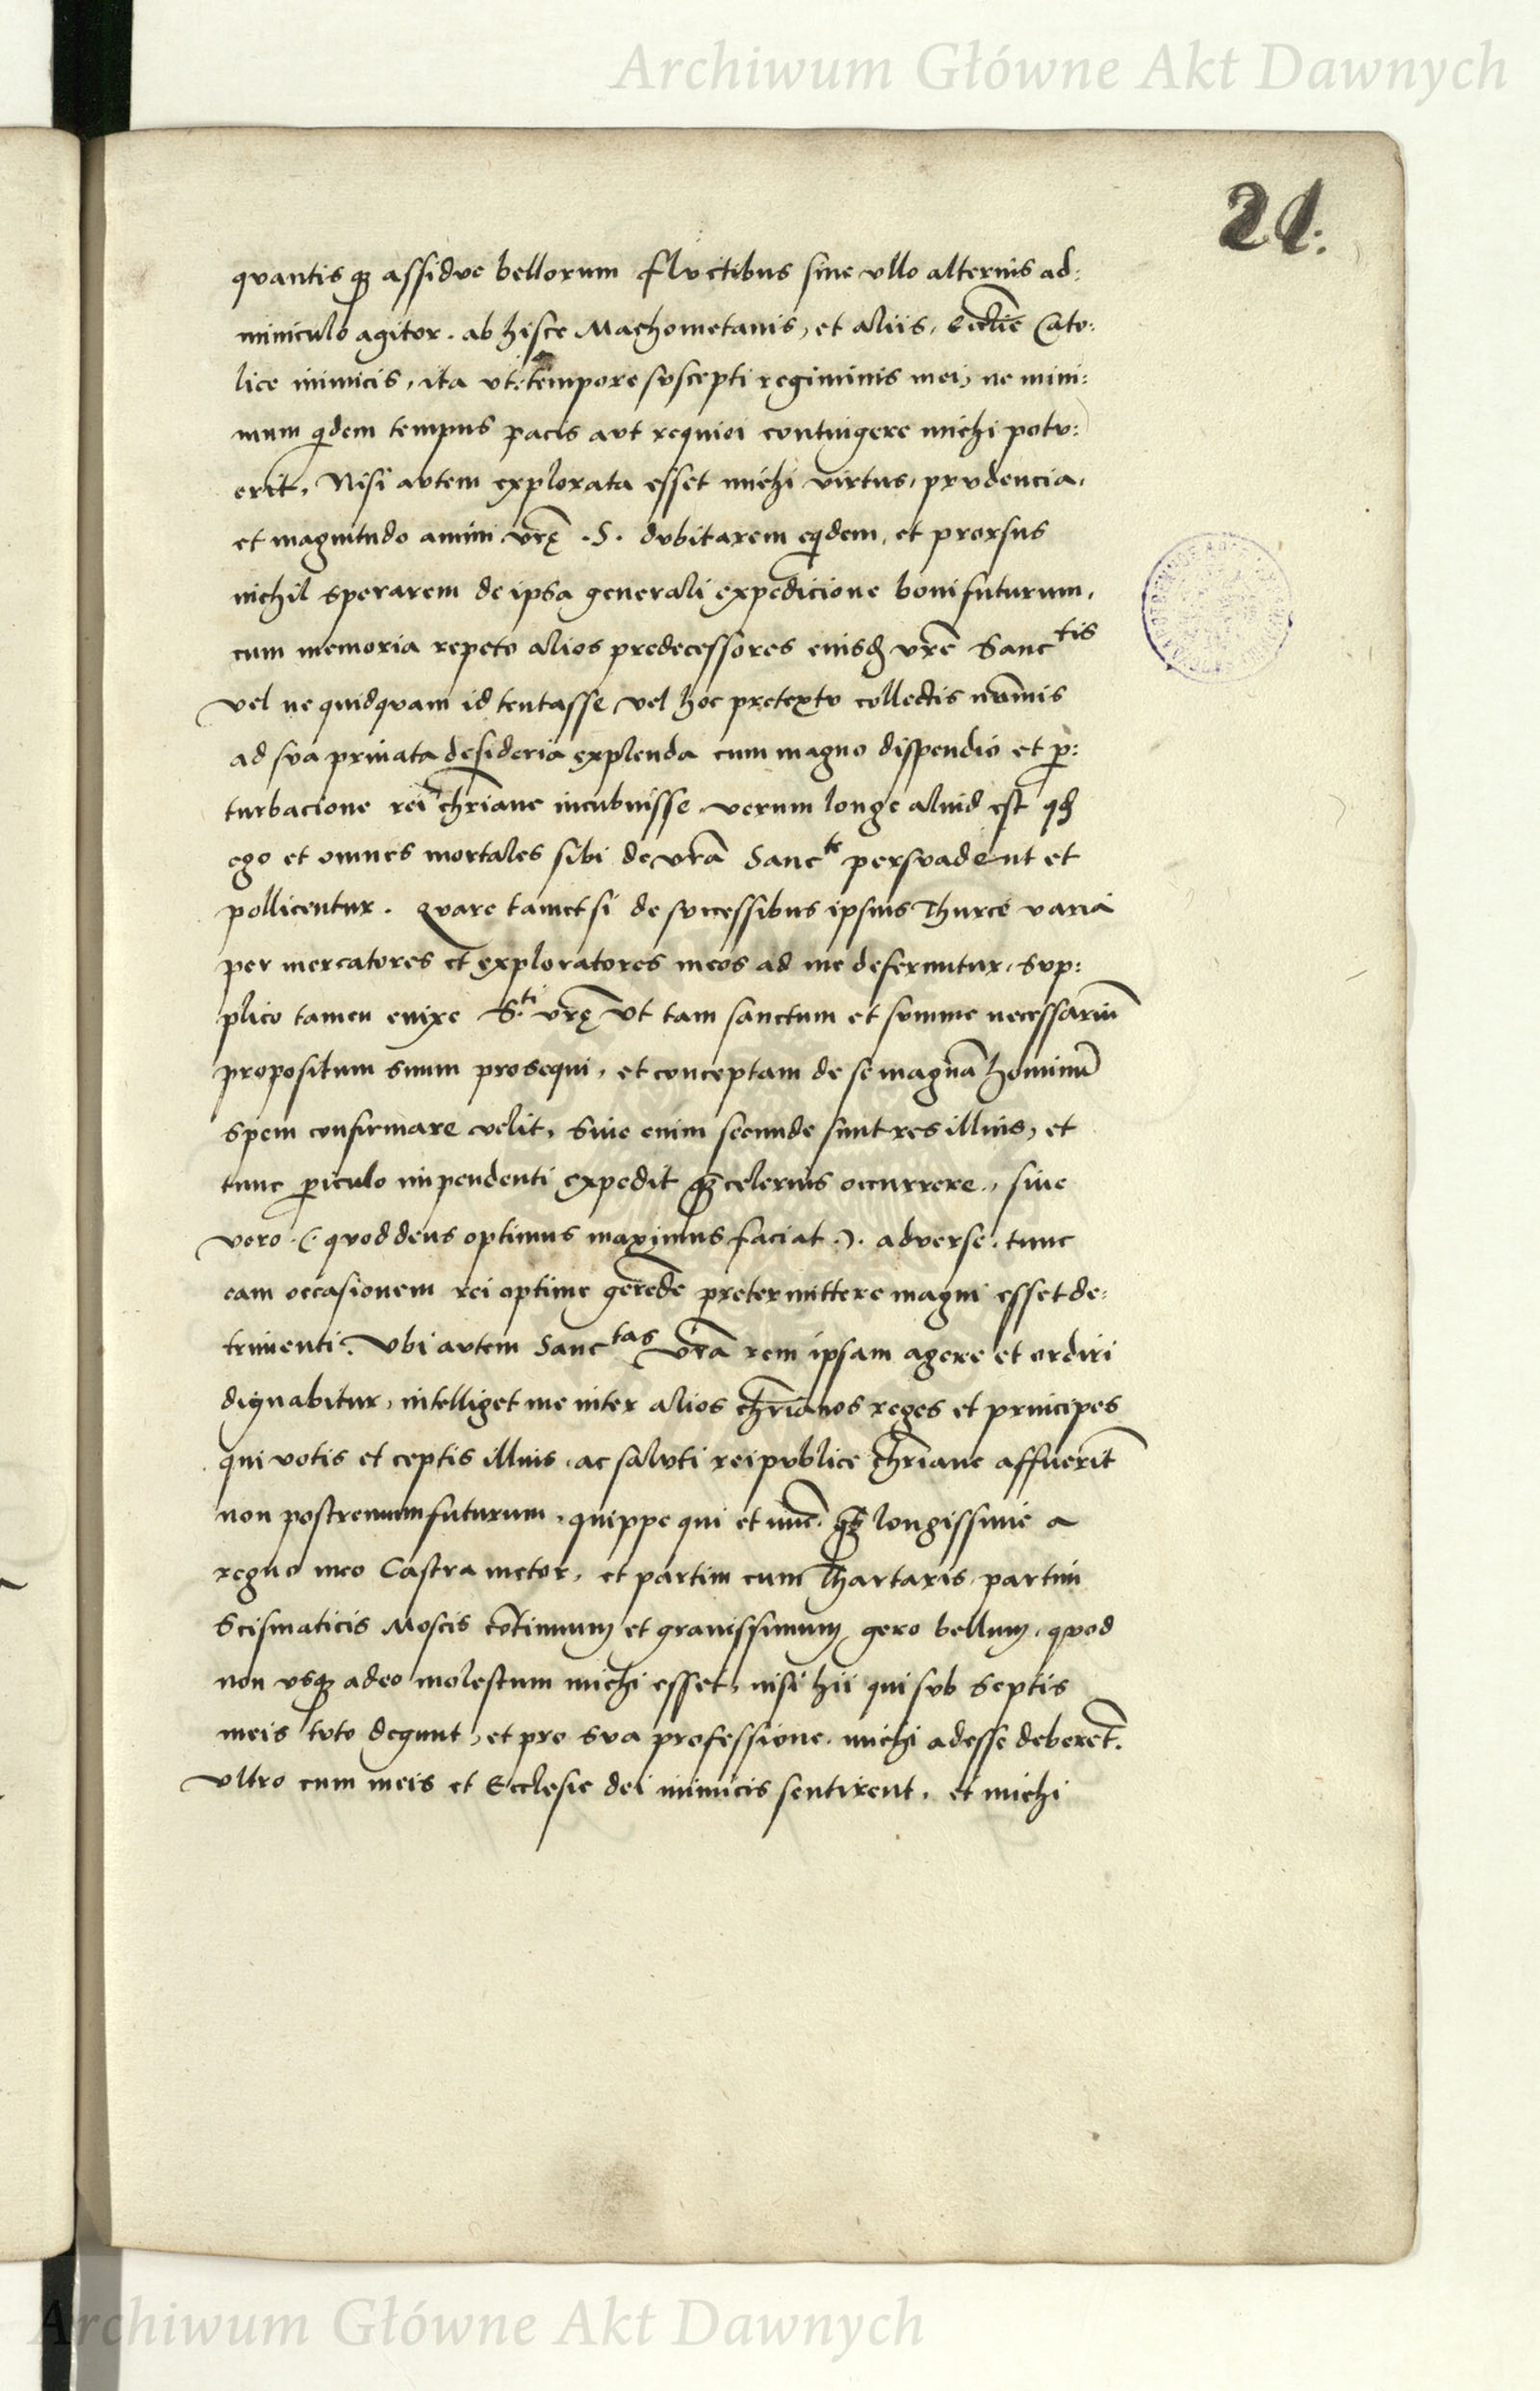 Archiwum Główne Akt Dawnych
21.
qvantisqꝫ assidve bellorum flvctibus sine vllo alterius ad:
miniculo agitor. ab hisce Machometanis, et aliis, Eccl̃ie Cato:
lice inimicis, ita vt tempore svscepti regiminis mei, ne mini:
mum qͥdem tempus pacis avt requiei contingere michi potv:
erit, Nisi avtem explorata esset michi virtus, prvdencia,
et magnitudo animi vrę̃ .S. dvbitarem eqͥdem, et prorsus
nichil sperarem de ipsa generali expedicione boni futurum,
cum memoria repeto alios predecessores eiusdẽ vrẽ Sanctis
vel ne quidqvam id tentasse, vel hoc pretextv collectis nũmis
ad sva priuata desideria explenda cum magno dispendio et ꝑ:
turbacione rei chr̃iane incubuisse. verum longe aliud est qđ
ego et omnes mortales sibi de vrã Sancte persvadent et
pollicentur. Qvare tametsi de svccessibus ipsius Thurce varia
per mercatores et exploratores meos ad me deferuntur, svp:
plico tamen enixe S.ti vrę̃ vt tam sanctum et svmme necessariũ
propositum suum prosequi, et conceptam de se magnã hominũ
spem confirmare velit, Siue enim secunde sunt res illius, et
tunc ꝑiculo impendenti expedit qͣꝫ celerius occurrere, siue
vero (: qvod deus optimus maximus faciat :). adverse, tunc
eam occasionem rei optime gerẽde pretermittere magni esset de:
trimenti. Vbi avtem Sanctas vrã rem ipsam agere et ordiri
dignabitur, intelliget me inter alios chr̃ianos reges et principes
qui votis et ceptis illius, ac salvti reipvblice chr̃iane affuerĩt
non postremum futurum, quippe qui et nũc. qͣꝫ longissime a
regno meo Castra metor, et partim cum Thartaris, partim
Scismaticis Moscis cõtinuum et grauissimum gero bellum, qvod
non vsqꝫ adeo molestum michi esset, nisi hii qui svb septis
meis tvto degunt, et pro sva professione, michi adesse deberẽt.
Vltro cum meis et Ecclesie dei inimicis sentirent, et michi
Archiwum Główne Akt Dawnych